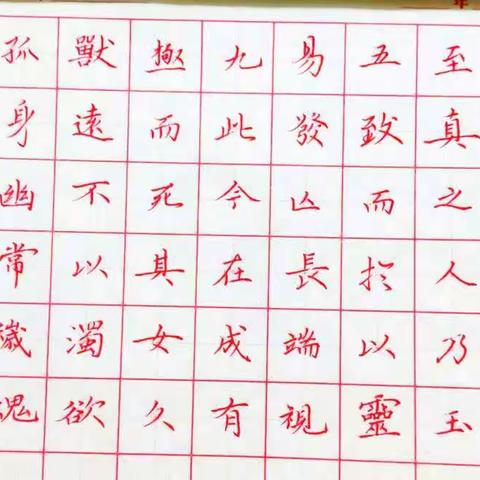 至真之人乃玉
五致而扵以靈
易發亾長端視
九此今在成有
極而死其女久
獸遠不以濁欲
孤身幽常穢魂